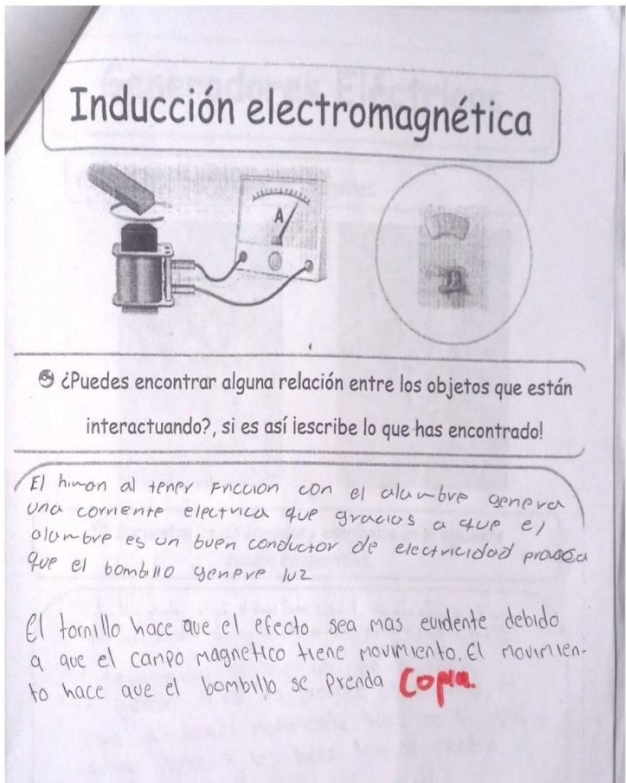 Inducción electromagnética
A
¿Puedes encontrar alguna relación entre los objetos que están
interactuando?, si es así ¡escribe lo que has encontrado!
El himan al tener friccion con el alambre genera
una corriente electrica que gracias a que el
alambre es un buen conductor de electricidad provoca
que el bombillo genere luz
El tornillo hace que el efecto sea mas evidente debido
a que el campo magnetico tiene movimiento. El movimien-
to hace que el bombillo se prenda Copia